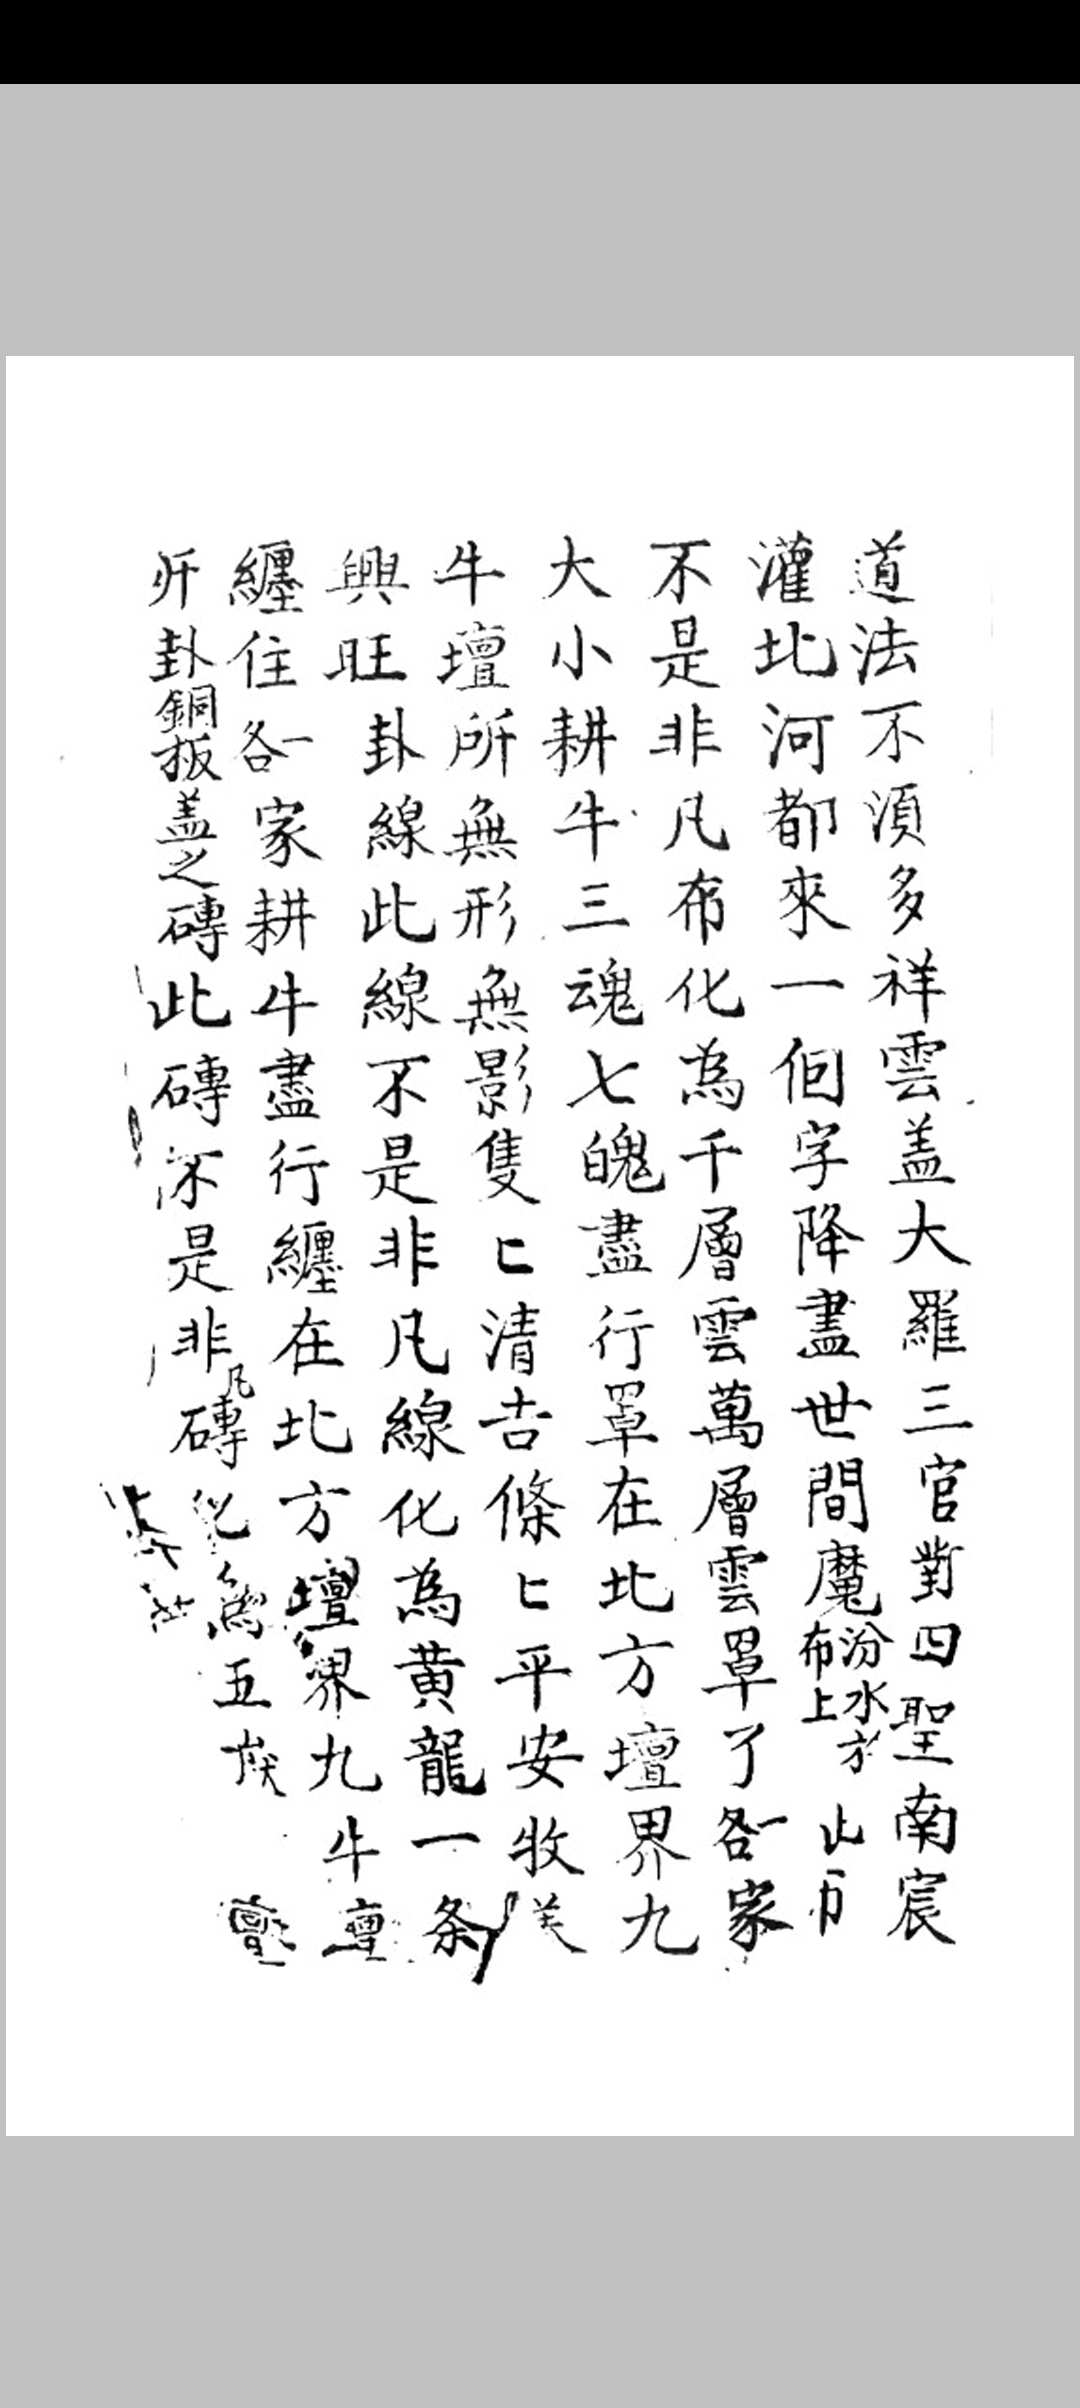 道法不須多祥雲盖大羅三官對四聖南宸
灌北河都來一個字降盡世間魔汾水方布上此布
不是非凡布化為千層雲萬層雲罩了各一家
大小耕牛三魂七魄盡行罩在北方壇界九
牛壇所無形無影隻匕清吉條匕平安牧
興旺卦線此線不是非凡線化為黄龍一条
纏住各一家耕牛盡行纏在北方壇界九牛壇
卦銅板盖之磚此磚不是非凡磚化為五